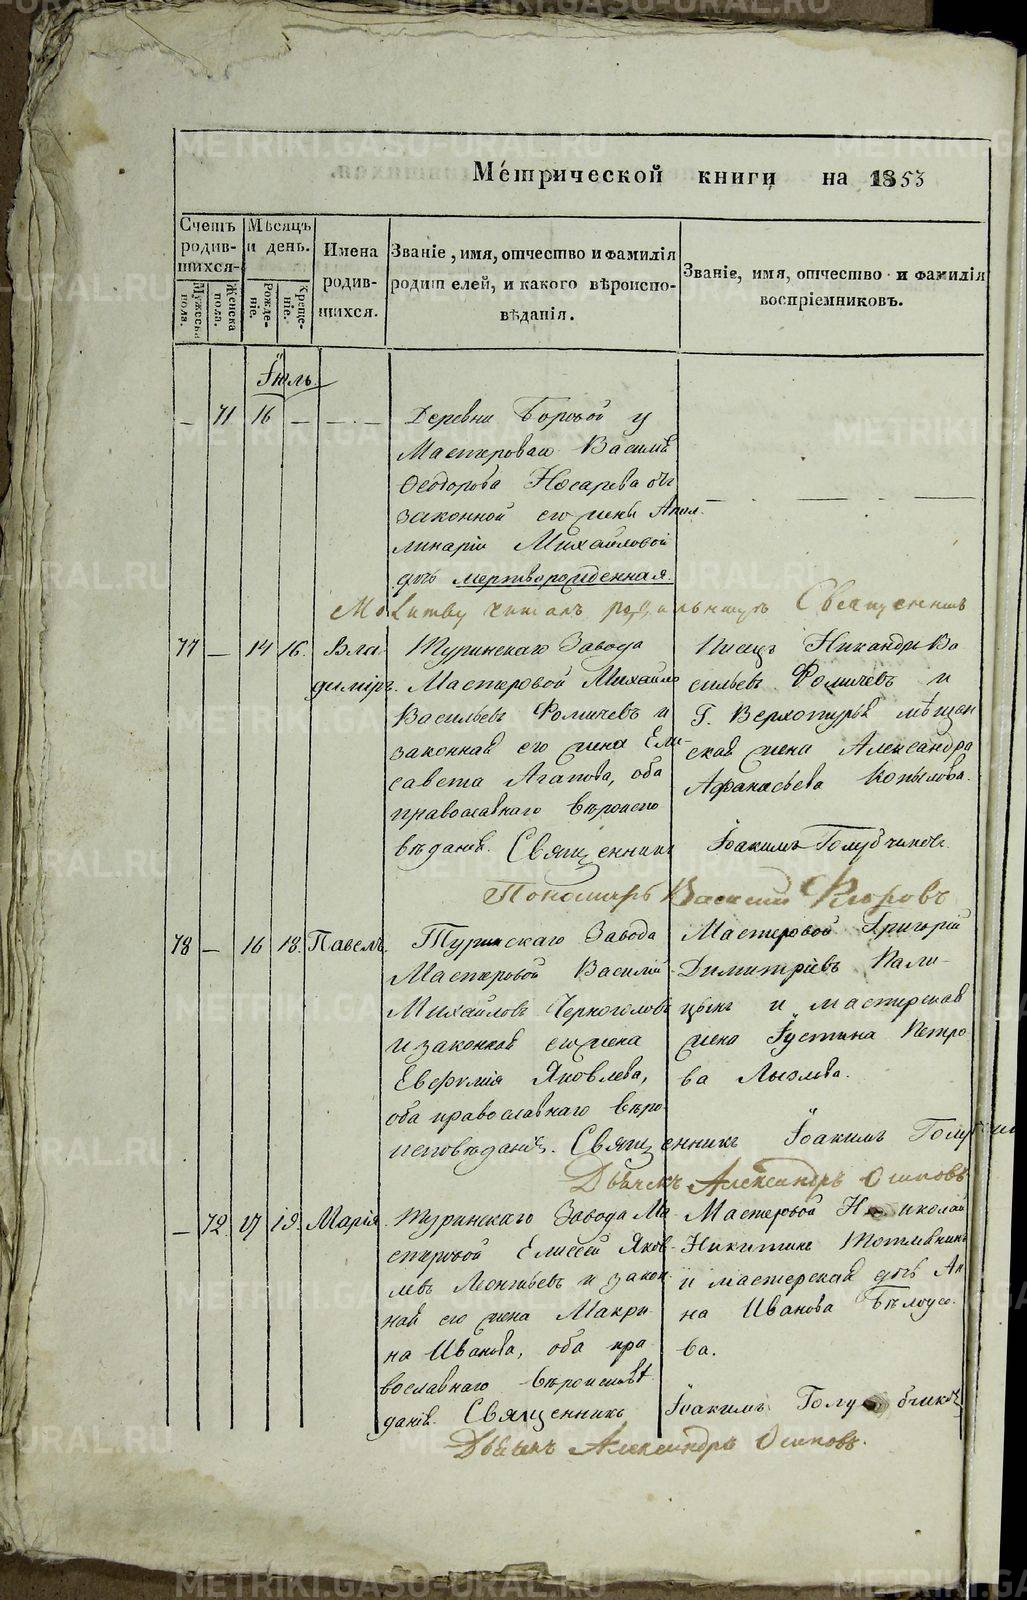 METRIKI.GASO-URAL.RU
Метрической книги на 1853
Счетъ родив-шихся.
Мужеска пола.
Женска пола.
Мѣсяцъ и день.
Рожде-ніе.
Креще-ніе.
Имена родив-шихся.
Званіе, имя, отчество и фамилія
родителей, и какого вѣроиспо-
вѣданія.
Званіе, имя, отчество и фамилія
воспріемниковъ.
Іюль
— 71 16 — — . — Деревни Боровой у
Мастероваго Василья
Ѳеодорова Носарева отъ
законной его жены Апол-
линаріи Михайловой
дчь мертворожденная.
Молитву читалъ родильницѣ Священникъ
77 — 14 16. Вла- Туринскаго Завода
димиръ. Мастеровой Михайло
Васильевъ Фомичевъ и
законная его жена Ели-
савета Агапова, оба
православнаго вѣроиспо
вѣданія.
Писецъ Никандръ Ва
сильевъ Фомичевъ и
Г. Верхотурья мѣщан
ская жена Александра
Афанасьева Копылова.
Священникъ Іоакимъ Голубчиковъ.
Пономарь Василий Флоровъ
78 — 16 18. Павелъ. Туринскаго Завода
Мастеровой Василій
Михайловъ Черноголовъ
и законная его жена
Евфимія Яковлева,
оба православнаго вѣро-
исповѣданія.
Мастеровой Григорій
Димитріевъ Пали-
цынъ и мастерская
жена Іустина Петро
ва Лызлова.
Священникъ Іоакимъ Голубчик
Дьячекъ Александръ Осиповъ
— 72. 17 19. Марія. Туринскаго Завода Ма
стеровой Елисей Яков-
левъ Леонтьевъ и закон
ная его жена Макри
на Иванова, оба пра
вославнаго вѣроисповѣ
данія.
Мастеровой Николай
Никитинъ
и мастерская дчь Ан
на Иванова Бѣлоусо-
ва.
Священникъ Іоакимъ Голубчиковъ
Дьячекъ Александръ Осиповъ.